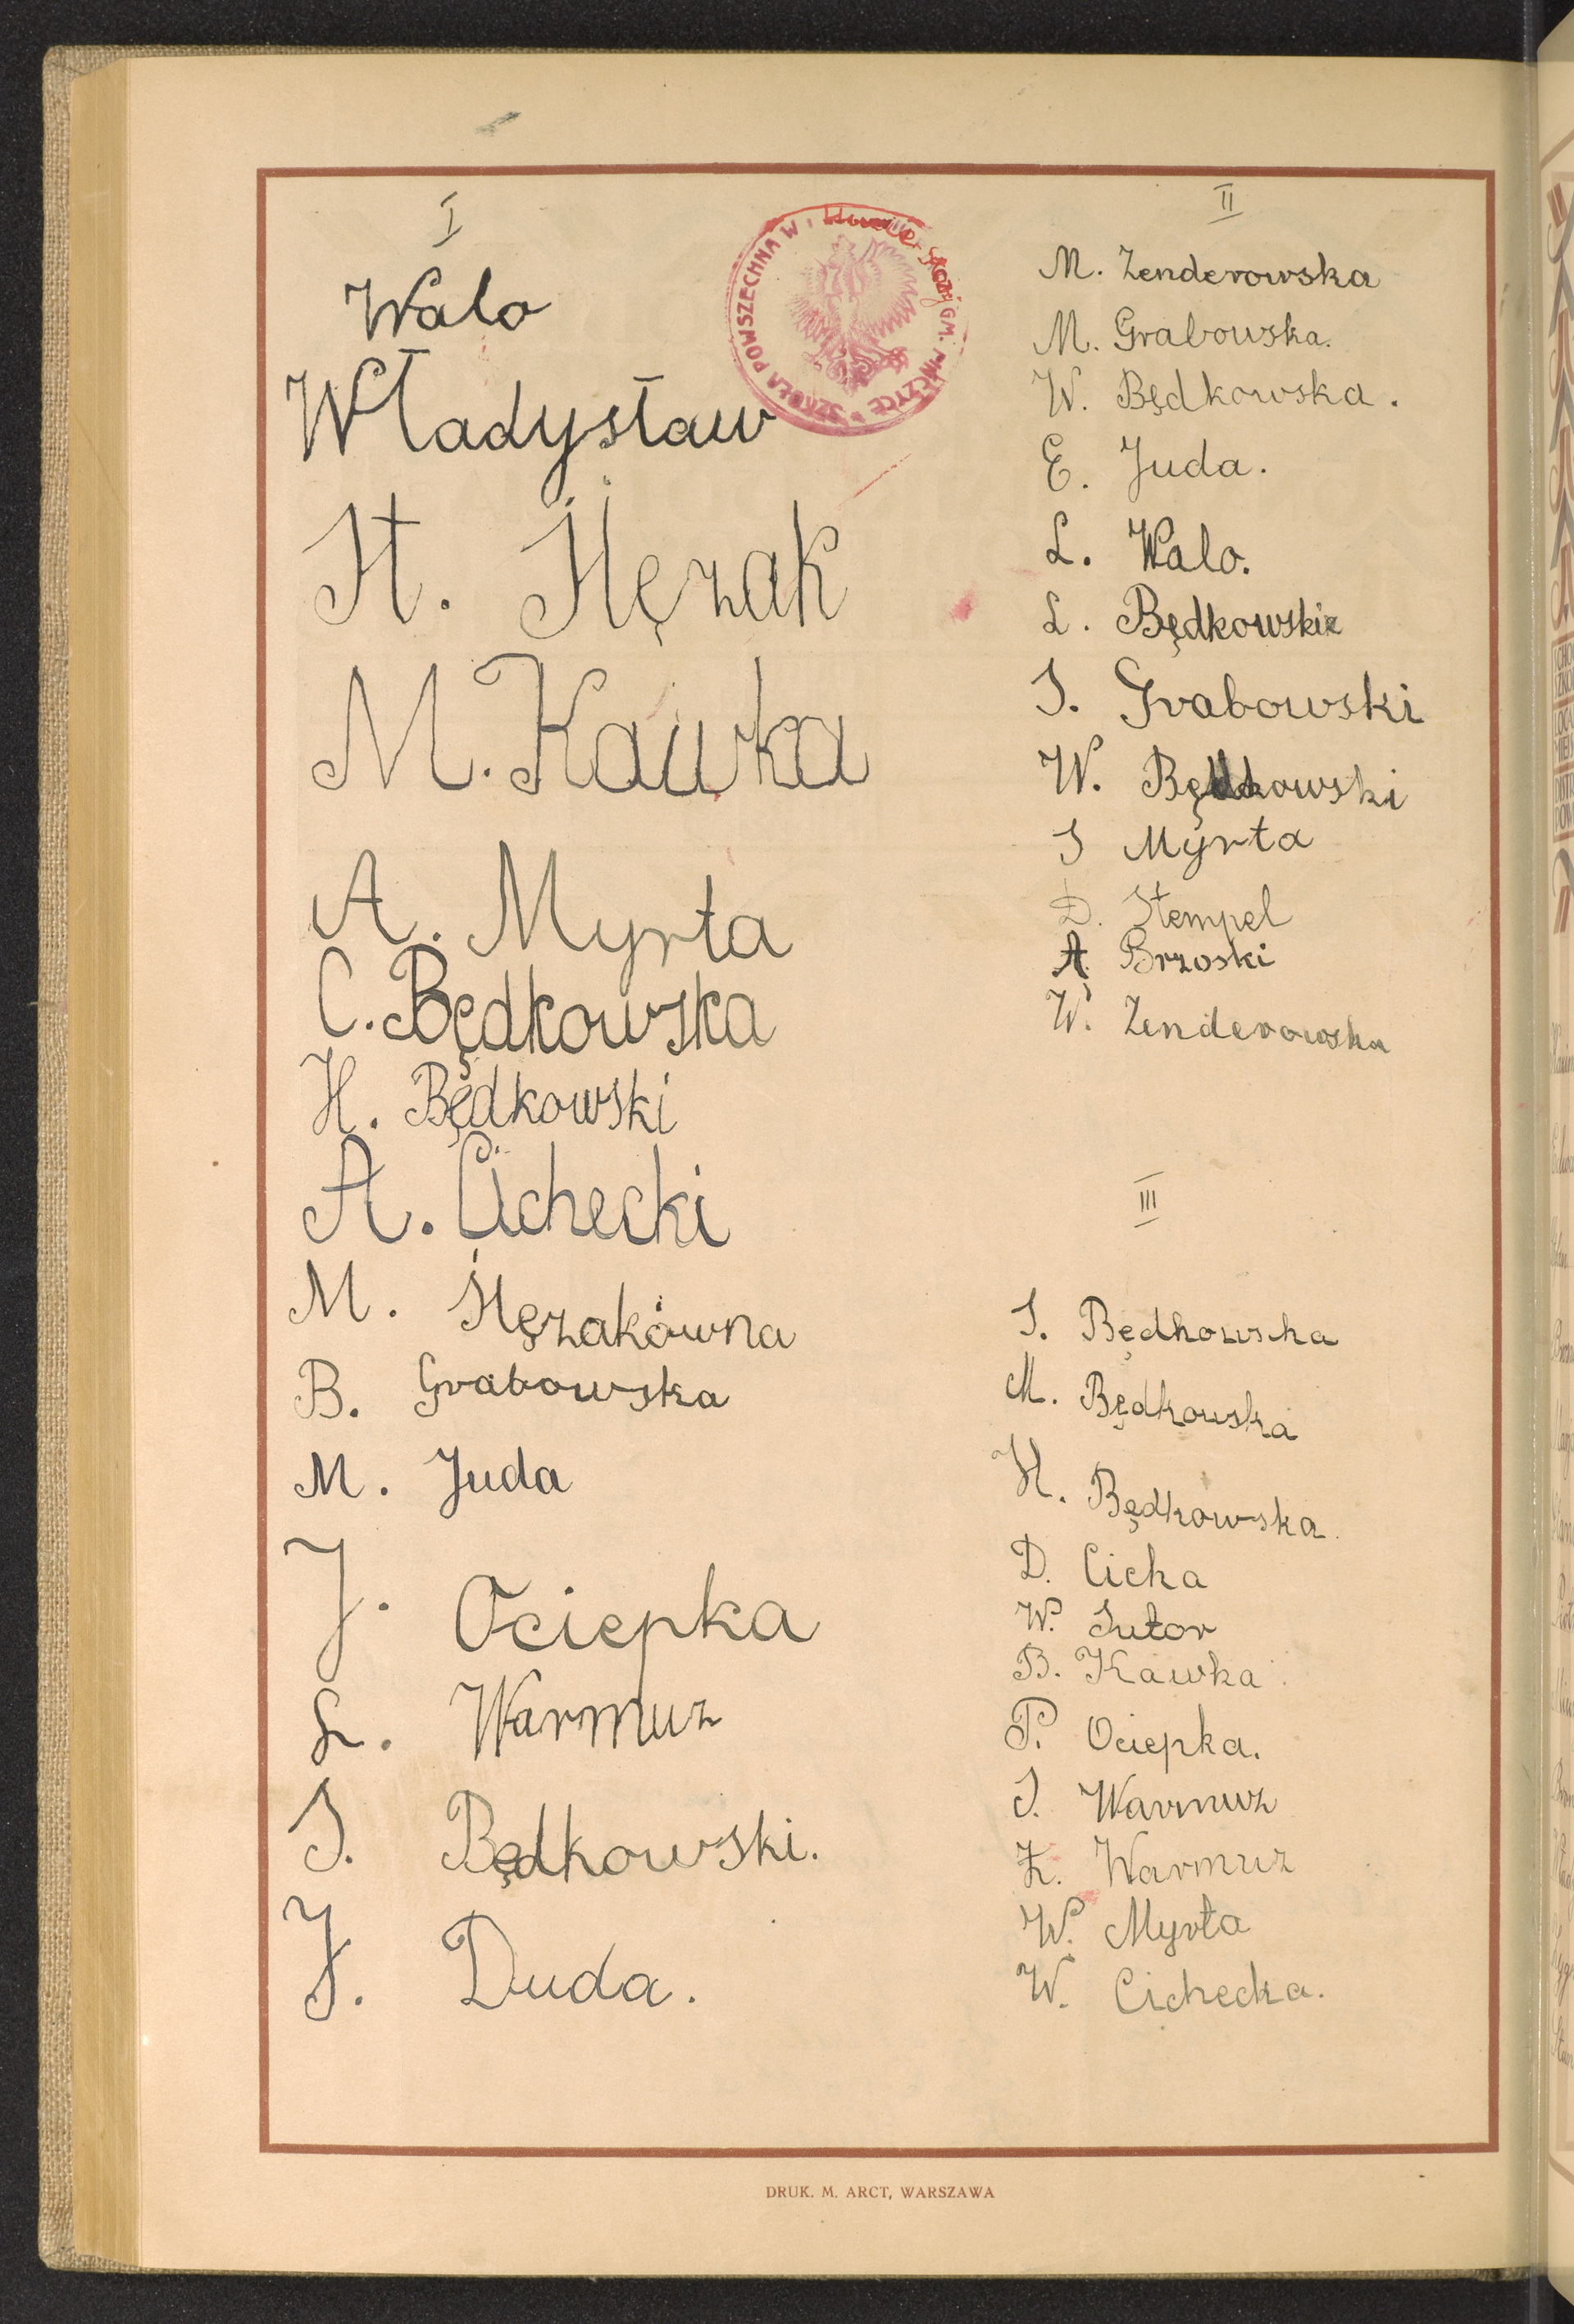 I
Walo
Władysław
St. Slęzak
M. Kawka
A. Myrta
C. Będkowska
H. Będkowski
A. Cichecki
M. Slęzakówna
B. Grabowska
M. Juda
J. Ociepka
L. Warmuz
S. Będkowski.
J. Duda.
SZKOŁA POWSZECHNA W
GM.
II
M. Zenderowska
M. Grabowska.
W. Będkowska.
E. Juda.
L. Walo.
L. Będkowski
S. Grabowski
W. Będkowski
S Myrta
D. Stempel
A. Brzoski
W. Zenderowska
III
S. Będkowska
M. Będkowska
H. Będkowska
D. Cicha
W. Sutor
B. Kawka
P. Ociepka.
S. Warmuz
Z. Warmuz
W. Myrta
W. Cichecka.
DRUK. M. ARCT, WARSZAWA